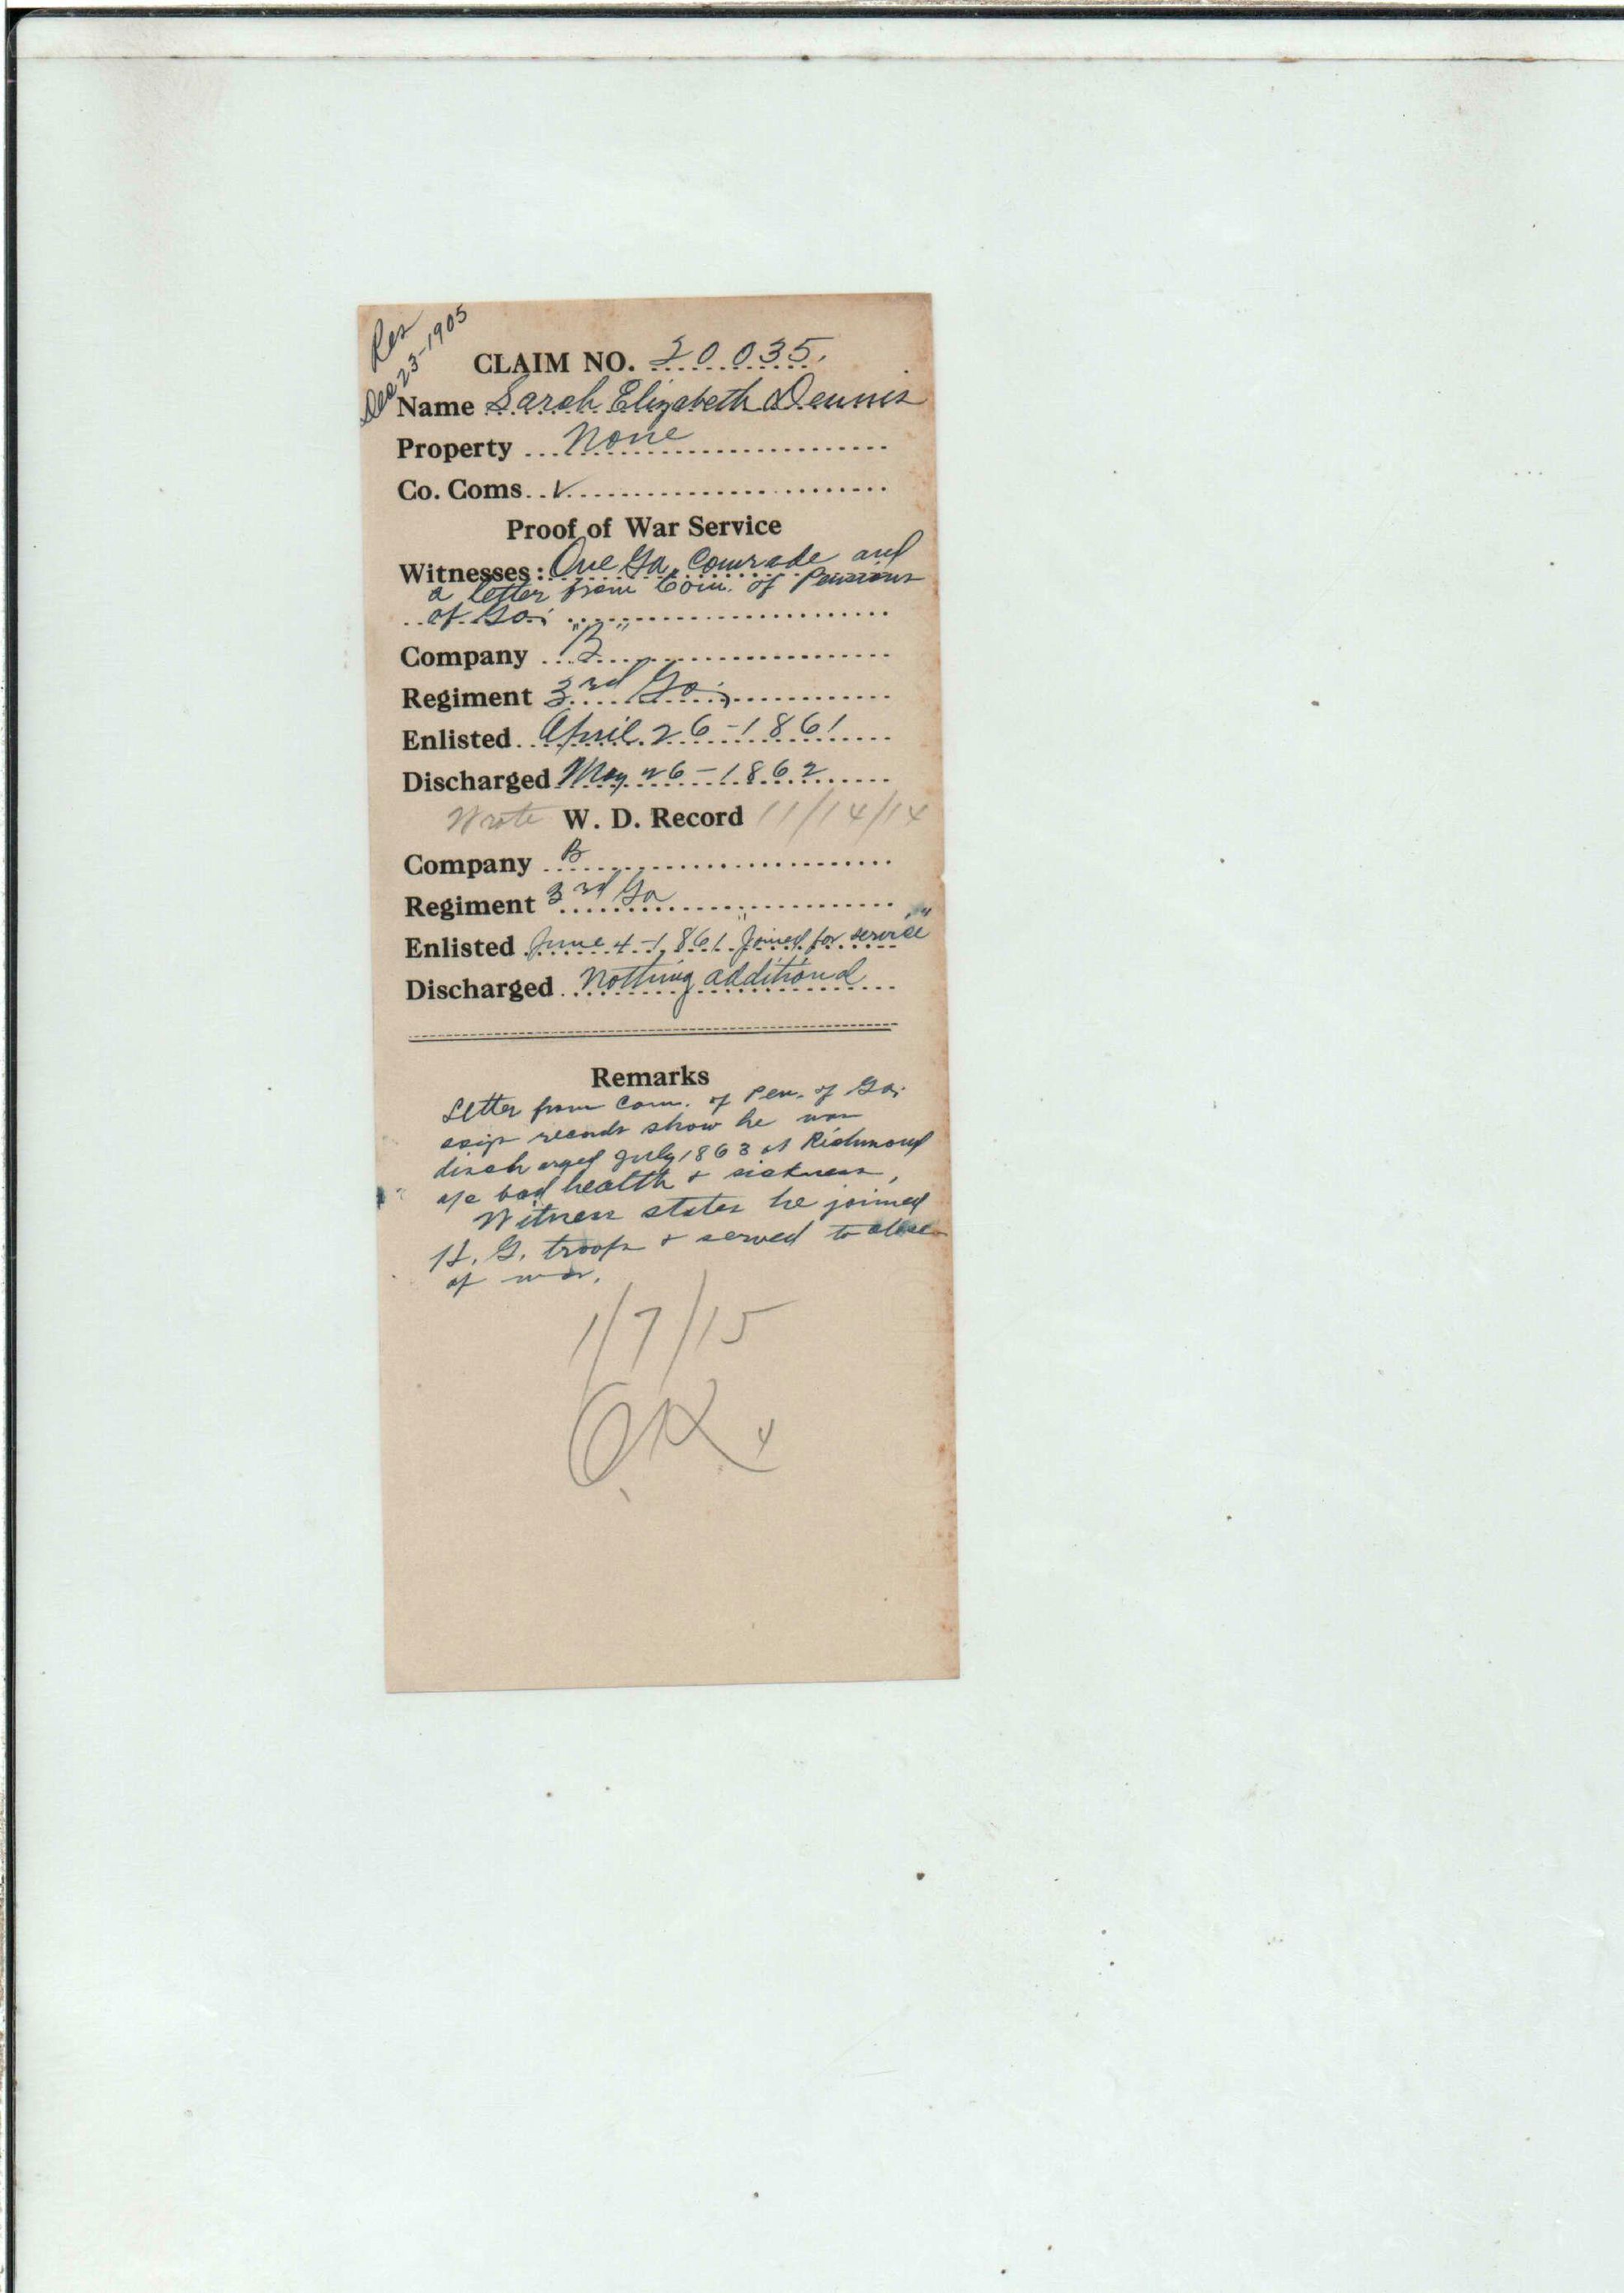 Res
Dec 23-1905
CLAIM NO. 20035.
Name Sarah Elizabeth Dennis
Property None
Co. Coms. ✓
Proof of War Service
Witnesses: One Ga. Comrade and
a letter from Com. of Pensions
of Ga.
Company "B"
Regiment 3rd Ga.
Enlisted April 26-1861
Discharged May 26-1862
Wrote W. D. Record 11/14/14
Company B
Regiment 3rd Ga
Enlisted June 4-1861 "Joined for service"
Discharged Nothing additional
Remarks
Letter from Com. of Pen. of Ga.
records show he was
discharged July 1863 at Richmond
a/c bad health & sickness,
Witness states he joined
H. G. troops & served to close
of war.
1/7/15
OK